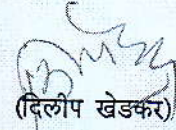 (दिलीप खेडकर)